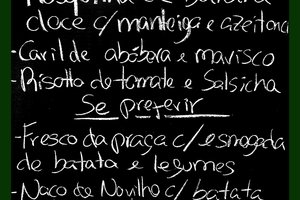 doce c/ manteiga e azeitona
- Caril de abóbora e marisco
- Risotto de tomate e Salsicha
Se preferir
- Fresco da praça c/ esmagada
de batata e legumes
- Naco de Novilho c/ batata